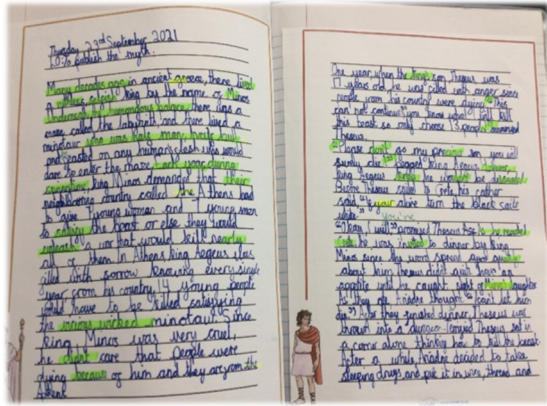 Thursday 23rd September 2021
L.O: To publish the myth.
Many decades ago in ancient greece, there lived
A king by the name of Minos
Underneath his humongous palace, there was a
maze called the labyrinth, and there lived a
minotaur who was half man, half bull
and feasted on any human flesh who would
dare to enter the maze. Every year during
King Minos demanded that their
neighbouring country called Athens had
to give 7 young women and 7 young men
to the beast or else they would
a war that would kill nearly
all of them. In Athens, King Aegeus was
filled with sorrow knowing every single
year from his country, 14 young people
would have to be killed satisfying
the minotaur. Since
King Minos was very cruel,
he didnt care that people were
dying because of him and they are from the
Athens.
One year, when the King's son Theseus was
years old, he was filled with anger. "Our
people from our country were dying. This
can not continue, you know what I will kill
this beast so only choose 13 people"
Theseus.
"Please don't go my son, you will
surely die," begged King Aegeus.
King Aegeus he
Before Theseus sailed to Crete, his father
said, "If your alive turn the black sails
white." you're
"Okay, I will," promised Theseus. As he reached
Crete, he was invited to dinner by King
Minos since the word spread
about him. Theseus didn't quite have an
appetite until he caught sight of daughter
As they ate Ariadne thought "I can't let him
die." After they finished dinner, Theseus was
thrown into a dungeon. Theseus sat in
a corner alone thinking how to kill the beast.
After a while, Ariadne decided to take
sleeping drugs and put it in wine, thread and